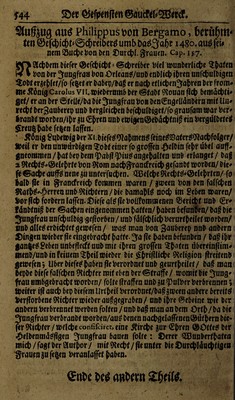 544 Der Gespensten Gauckel-Werck.
Außzug aus Philippus von Bergamo, berühm-
ten Geschicht-Schreibers umb das Jahr 1480. aus sei-
nem Buche von den Durchl. Frauen. Cap. 157.
NAchdem dieser Geschicht-Schreiber viel wunderliche Thaten
von der Jungfrau von Orleans/und endlich ihren unschuldigen
Todt erzehlet/so setzet er dabey/daß
König Carolus VII. wiederumb der Stadt Roan
der Jungfrau von den Engelländern
der Zauberey und dergleichen beschuldiget/
worden/er ihr zu Ehren und zum ewigen Gedächtnis ein vergüldetes
Creutz habe setzen lassen.
König Ludewig der XI dieses Nahmens seines Vaters Nachfolger/
weil er den unwürdigen Todt einer so grossen Heldin sehr übel auff-
genommen/hat bey dem Pabst Pius angehalten und erlanget/daß
2. Rechts-Gelehrte von Rom nach Franckreich gesandt worden/die-
se Sache auffs neue zu untersuchen. Welche Rechts-Gelehrten/so
bald sie in Franckreich kommen waren/zween von den falschen
Raths-Herren und Richtern/die damahls noch im Leben waren/
vor sich fordern lassen. Diese als sie vollkommenen Bericht und Er-
käntniß der Sachen eingenommen hatten/haben befunden/daß die
Jungfrau unschuldig gestorben/und fälschlich verurtheilet worden/
und alles erdichtet gewesen/was man von Zauberey und andern
Dingen wieder sie eingebracht hatte. Ja sie haben befunden/daß ihr
gantzes Leben unbefleckt und mit ihren grossen Thaten übereinstim-
mend/und in keinem Theil wieder die Christliche Religion streitend
gewesen; Über dieses haben sie verordnet und geurtheilet/daß man
beyde diese falschen Richter mit eben der Straffe/womit die Jung-
frau umbgebracht worden/
weiter ist auch bey diesem Urtheil verordnet/daß zween andere bereits
verstorbene Richter wieder außgegraben/und ihre Gebeine wie der
andern verbrennet werden solten/und daß man an dem Orth/da die
Jungfrau verbrandt worden/aus denen auch gelassenen Güthern die-
ser Richter/welche confisciret, eine Kirche zur Ehren GOttes der
Heldenmüßigen Jungfrau bauen solte:
mich/sagt der Author/mit Recht/sie unter die Durchläuchtigen
Frauen zu setzen veranlasset haben.
Ende des andern Theils.